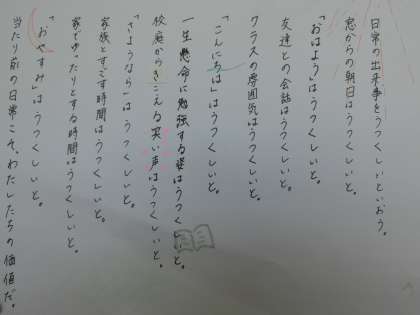 日常の出来事をうつくしいといおう。
窓からの朝日はうつくしいと。
「おはよう」はうつくしいと。
友達との会話はうつくしいと。
クラスの雰囲気はうつくしいと。
「こんにちは」はうつくしいと。
一生懸命に勉強する姿はうつくしいと。
校庭からきこえる笑い声はうつくしいと。
「さようなら」はうつくしいと。
家族とすごす時間はうつくしいと。
家でゆったりとする時間はうつくしいと。
「おやすみ」はうつくしいと。
当たり前の日常こそ、わたしたちの価値だ。